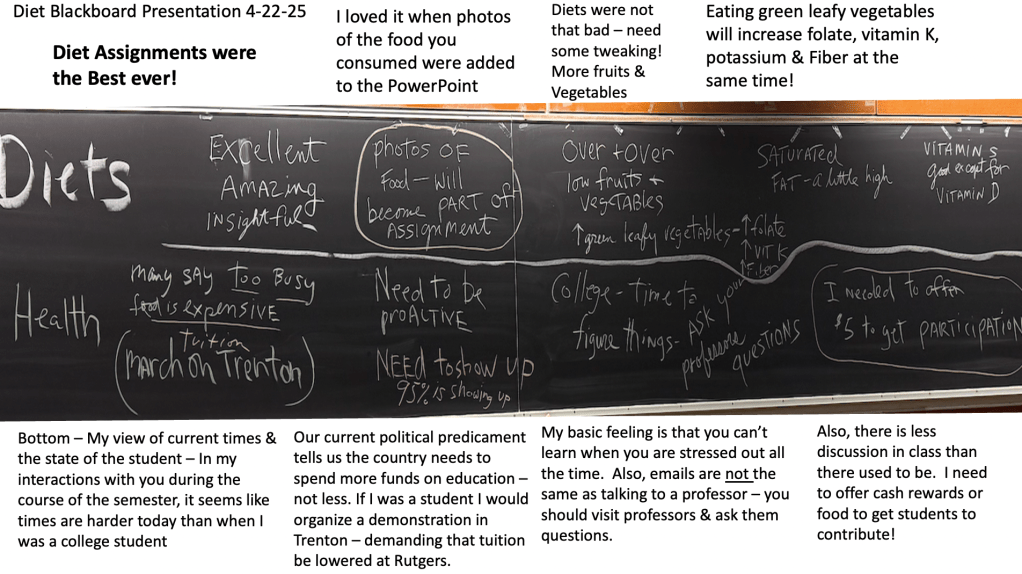 Diet Blackboard Presentation 4-22-25
Diet Assignments were
the Best ever!
I loved it when photos
of the food you
consumed were added
to the PowerPoint
Diets were not
that bad – need
some tweaking!
More fruits &
Vegetables
Eating green leafy vegetables
will increase folate, vitamin K,
potassium & Fiber at the
same time!
Diets
Excellent
Amazing
Insightful
photos of
Food – will
become PART of
ASSIGNMENT
Over + over
low fruits +
vegetables
↑ green leafy vegetables – ↑ folate
↑ VIT K
↑ Fiber
SATURATED
FAT – a little high
VITAMINS
good except for
VITAMIN D
Health
Many SAY too Busy
food is expensive
tuition
(March on Trenton)
Need to be
proACTIVE
NEED to show up
95% is showing up
College – time to
figure things –
ASK your
professors
questions
I needed to offer
$5 to get PARTICIPATION
Bottom – My view of current times &
the state of the student – In my
interactions with you during the
course of the semester, it seems like
times are harder today than when I
was a college student
Our current political predicament
tells us the country needs to
spend more funds on education –
not less. If I was a student I would
organize a demonstration in
Trenton – demanding that tuition
be lowered at Rutgers.
My basic feeling is that you can't
learn when you are stressed out all
the time.  Also, emails are not the
same as talking to a professor – you
should visit professors & ask them
questions.
Also, there is less
discussion in class than
there used to be.  I need
to offer cash rewards or
food to get students to
contribute!